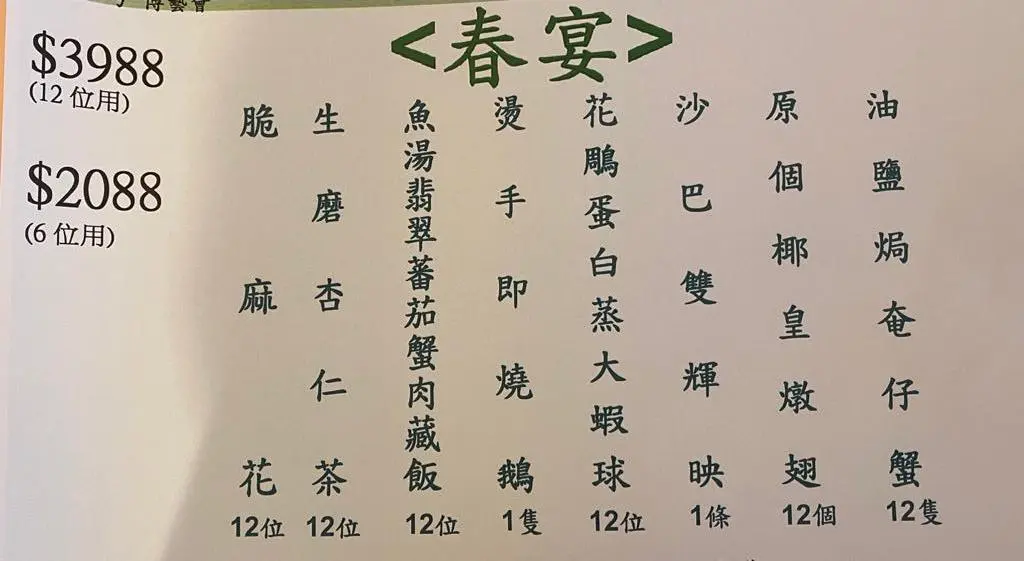 博藝會
<春宴>
$3988
(12位用)
$2088
(6位用)
油鹽焗奄仔蟹
12隻
原個椰皇燉翅
12個
沙巴雙輝映
1條
花鵰蛋白蒸大蝦球
12位
燙手即燒鵝
1隻
魚湯翡翠蕃茄蟹肉藏飯
12位
生磨杏仁茶
12位
脆麻花
12位